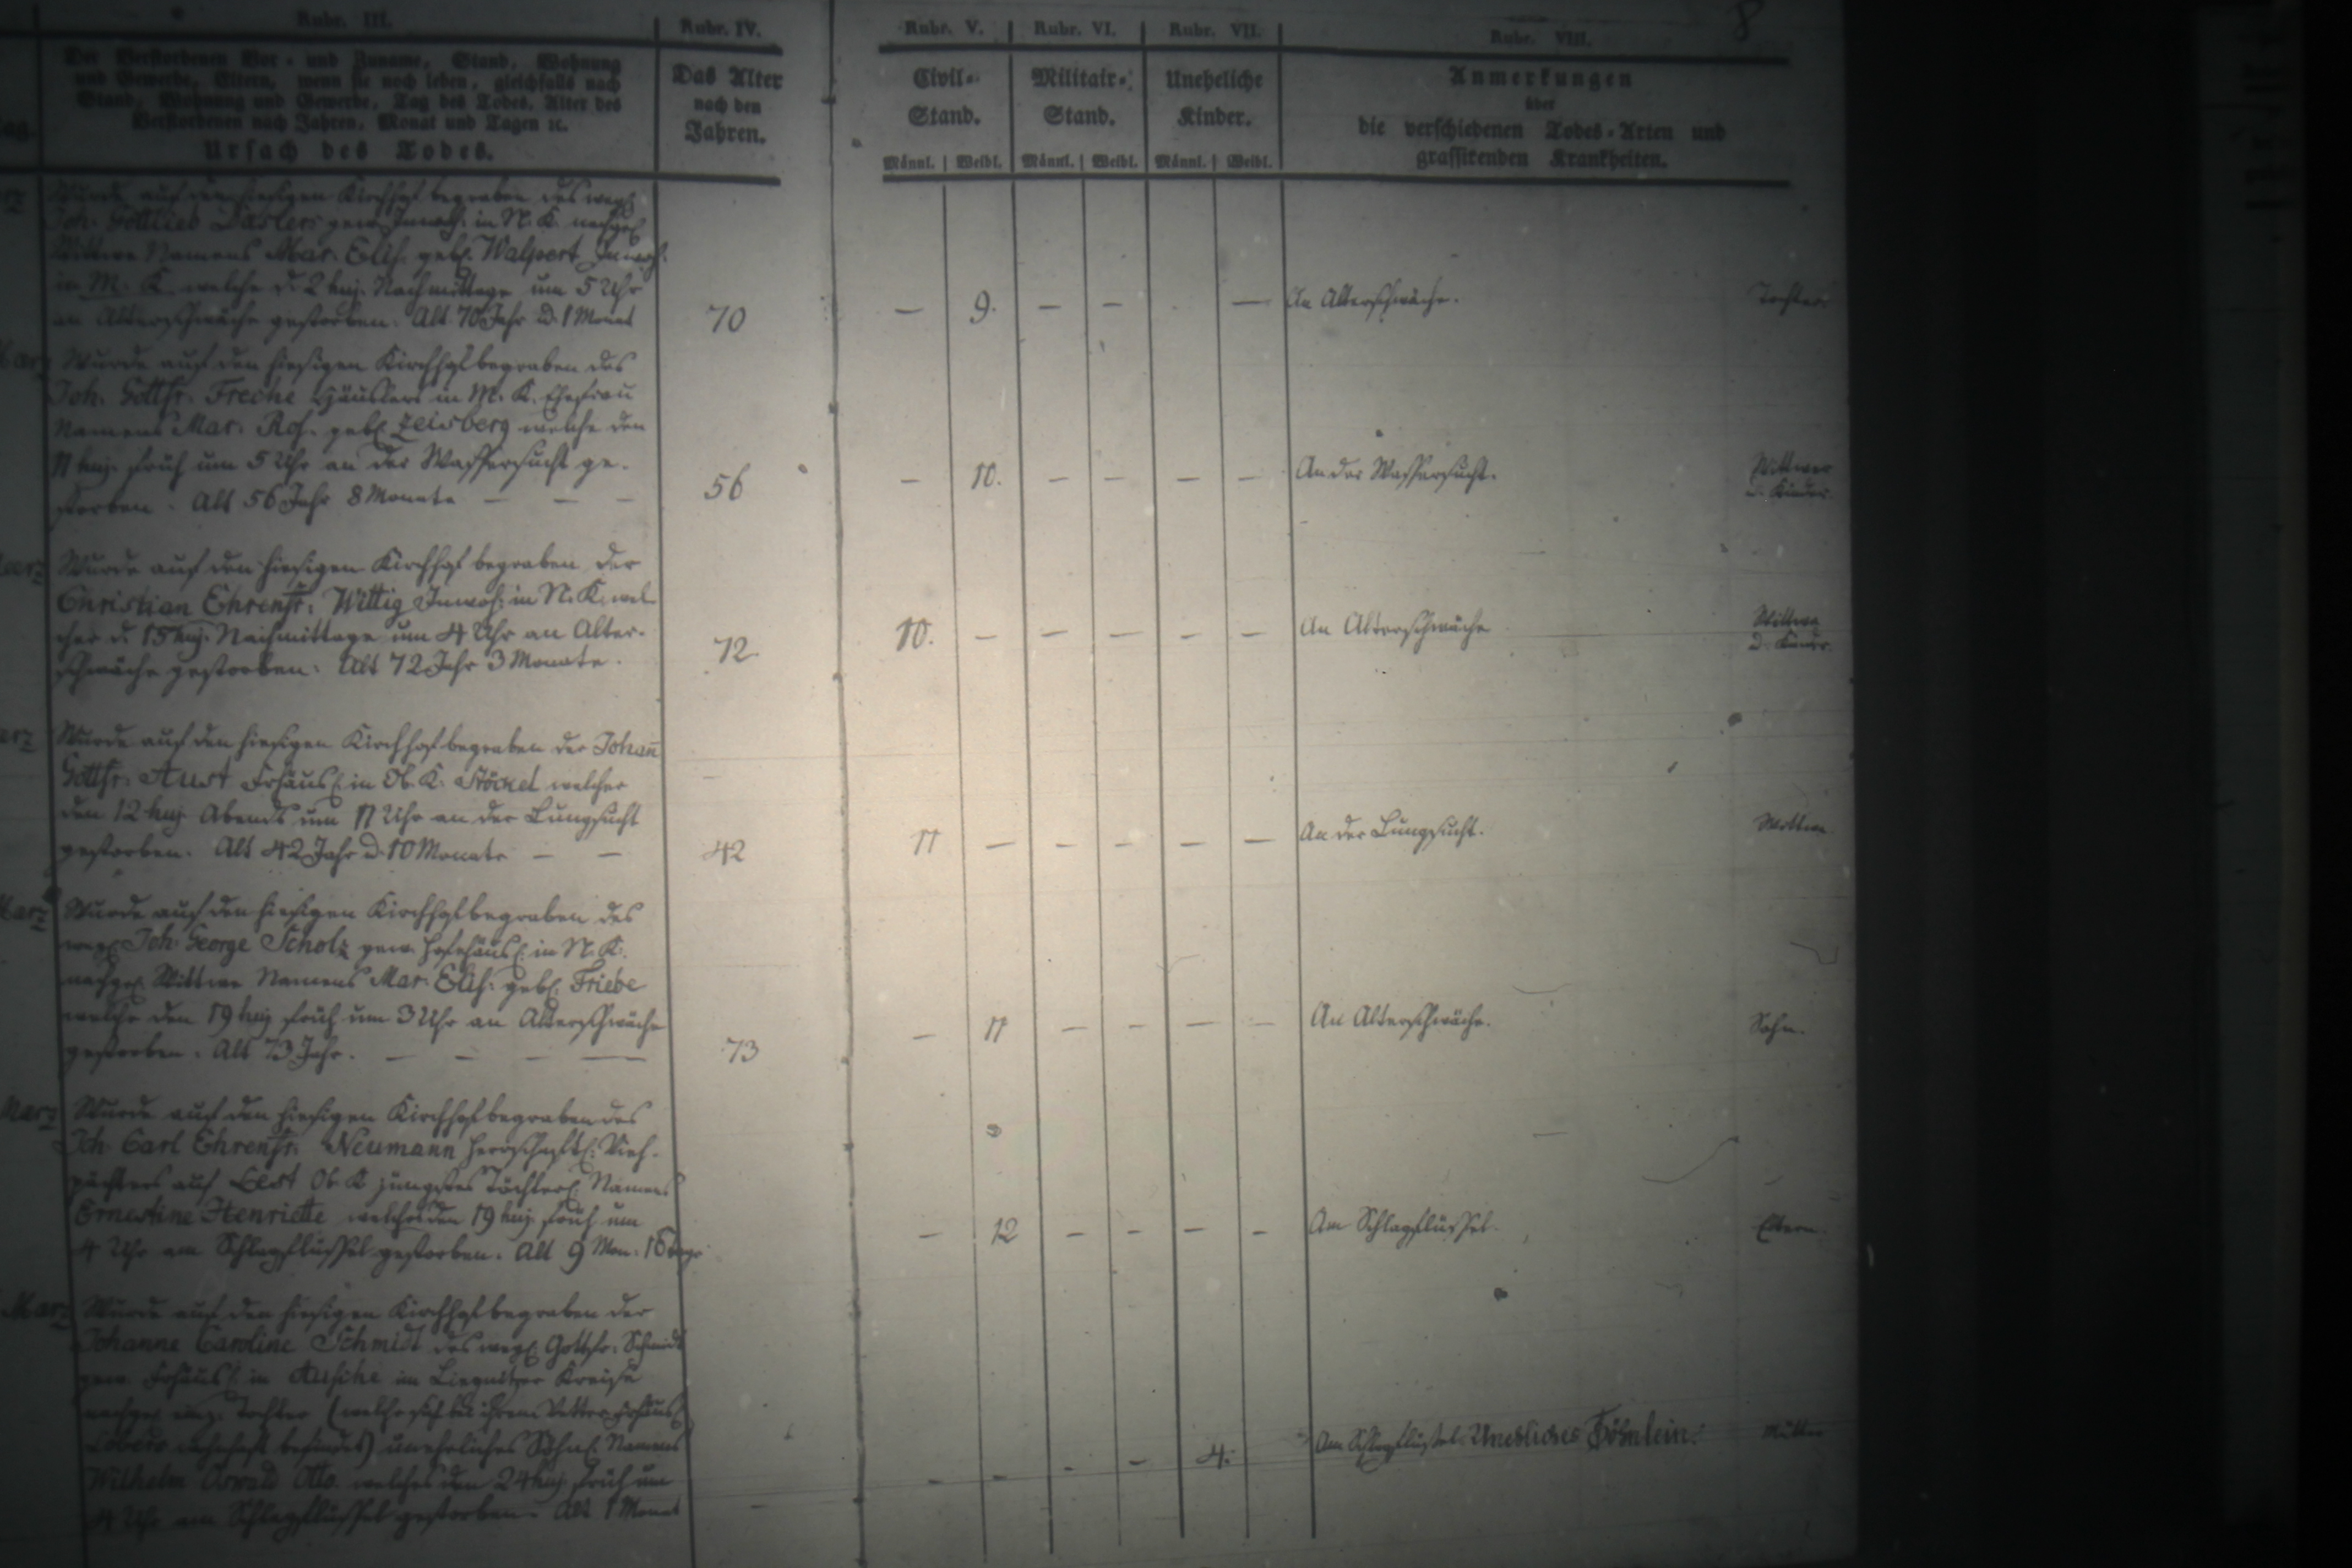 8
Rubr. III.
Der Verstorbenen Vor- und Zuname, Stand, Wohnung
und Gewerbe, Eltern, wenn sie noch leben, gleichfalls nach
Stand, Wohnung und Gewerbe, Tag des Todes, Alter des
Verstorbenen nach Jahren, Monat und Tagen ꝛc.
Ursach des Todes.
Rubr. IV.
Das Alter
nach den
Jahren.
Rubr. V.
Civil-
Stand.
Männl. Weibl.
Rubr. VI.
Militair-
Stand.
Männl. Weibl.
Rubr. VII.
Uneheliche
Kinder.
Männl. Weibl.
Rubr. VIII.
Anmerkungen
über
die verschiedenen Todes-Arten und
grassirenden Krankheiten.
Wurde auf den hiesigen Kirchhof begraben des weyl.
Joh. Gottlieb Daslers gew. Inwoh. in N. K. nachgel.
Wittwe Namens Mar. Elis. geb. Walpert Inwoh.
in M. K. welche d. 2 huj. Nachmittage um 5 Uhr
an Altersschwäche gestorben. Alt 70 Jahr u. 1 Monat
70
— 9. — — —
An Altersschwäche.
Tochter
Wurde auf den hiesigen Kirchhof begraben des
Joh. Gottfr. Freche Häuslers in M. K. Ehefrau
Namens Mar. Ros. geb. Zeisberg welche den
11 huj. früh um 5 Uhr an der Wassersucht ge-
storben. Alt 56 Jahr 8 Monate — — —
56
— 10. — — — —
An der Wassersucht.
Wittwer
u. Kinder.
Wurde auf den hiesigen Kirchhof begraben der
Christian Ehrenfr. Wittig Inwoh. in N. K. wel-
cher d. 15 huj. Nachmittage um 4 Uhr an Alter-
schwäche gestorben. Alt 72 Jahr 3 Monate.
72
10. — — — — —
An Altersschwäche
Wittwe
u. Kinder.
Wurde auf den hiesigen Kirchhof begraben der Johan̄
Gottfr. Aust Frhäusl. in Ob. K. Stöckel welcher
den 12 huj Abends um 11 Uhr an der Lungsucht
gestorben. Alt 42 Jahr u. 10 Monate — —
42
11 — — — — —
An der Lungsucht.
Wittwe.
Wurde auf den hiesigen Kirchhof begraben des
weyl. Joh. George Scholz gew. Hofehäusl. in N. K.
nachgel. Wittwe Namens Mar. Elis. geb. Friebe
welche den 19 huj früh um 3 Uhr an Altersschwäche
gestorben. Alt 73 Jahr. — — — —
73
— 11 — — — —
An Altersschwäche.
Sohn.
Wurde auf den hiesigen Kirchhof begraben des
Joh. Carl Ehrenfr. Neumann herrschaftl. Vieh-
pächters auf Ob. K. jüngstes Töchterl. Namens
Ernestine Henriette welches den 19 huj früh um
4 Uhr am Schlagflüssel gestorben. Alt 9 Mon. 16 Tage
— 12 — — — —
Am Schlagflüssel.
Eltern.
Wurde auf den hiesigen Kirchhof begraben der
Johanne Caroline Schmidt des weyl. Gottfr. Schmidt
gew. Frhäusl. in im Liegnitzer Kreise
nachgel. Tochter (welche sich bei ihrem Vetter
befindet) uneheliches Söhnl. Namens
Wilhelm Oswald Otto welches den 24 huj. früh um
4 Uhr am Schlagflüssel gestorben. Alt 1 Monat
—
— — — — 4.
Am Schlagflüssel. Unehliches Söhnlein.
Mutter